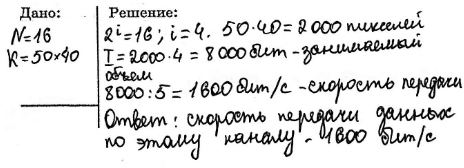 Дано:
N=16
K=50×40
Решение:
2^i=16; i=4. 50·40=2000 пикселей
I=2000·4=8000бит-занимаемый
объем
8000:5=1600бит/с-скорость передачи
Ответ: скорость передачи данных
по этому каналу - 1600 бит/с